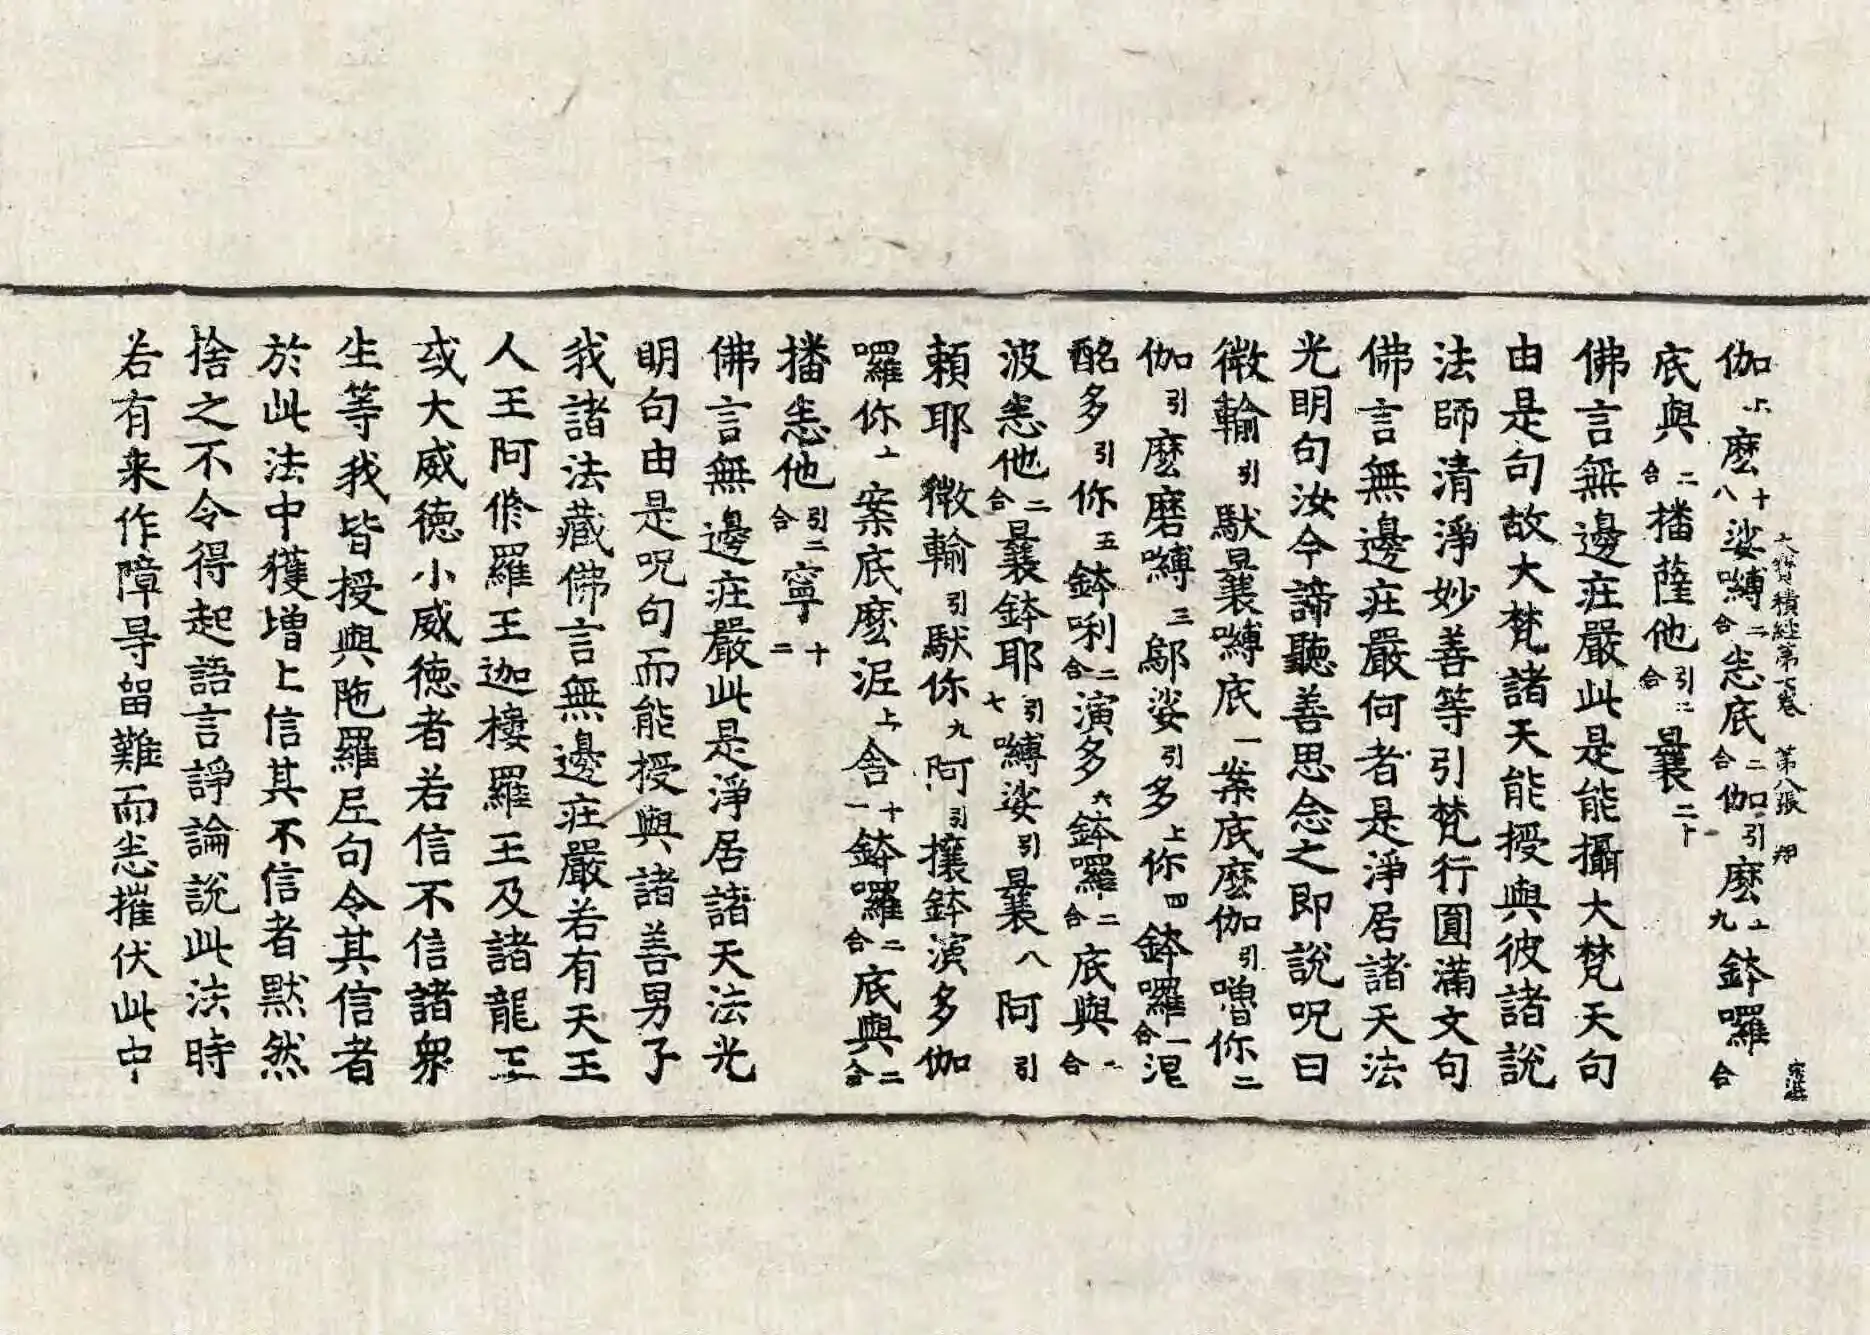 大寶積經第七卷 第八張 翔
伽上麽十八娑嚩二合恚底二合伽引麽上九鉢囉合
底與二合播薩他引二合曩二十
佛言無邊疘嚴此是能攝大梵天句
由是句故大梵諸天能授與彼諸說
法師清淨妙善等引梵行圓滿文句
佛言無邊疘嚴何者是淨居諸天法
光明句汝今諦聽善思念之即說呪曰
微輸引馱曩嚩底一案底麽伽引嚕你二
伽引麽磨嚩三鄔娑引多上你四鉢囉一合泥
酩多引你五鉢唎二合演多六鉢囉二合底與二合
波恚他二合曩鉢耶引七嚩娑引曩八阿引
頼耶微輸引馱你九阿引攘鉢演多伽
囉你上案底麽泥上舍十一鉢囉二合底與二合
播恚他引二合寧十二
佛言無邊疘嚴此是淨居諸天法光
明句由是呪句而能授與諸善男子
我諸法藏佛言無邊疘嚴若有天王
人王阿修羅王迦樓羅王及諸龍王
或大威德小威德者若信不信諸衆
生等我皆授與陁羅𡰱句令其信者
於此法中獲增上信其不信者默然
捨之不令得起語言諍論說此法時
若有来作障㝵留難而恚摧伏此中